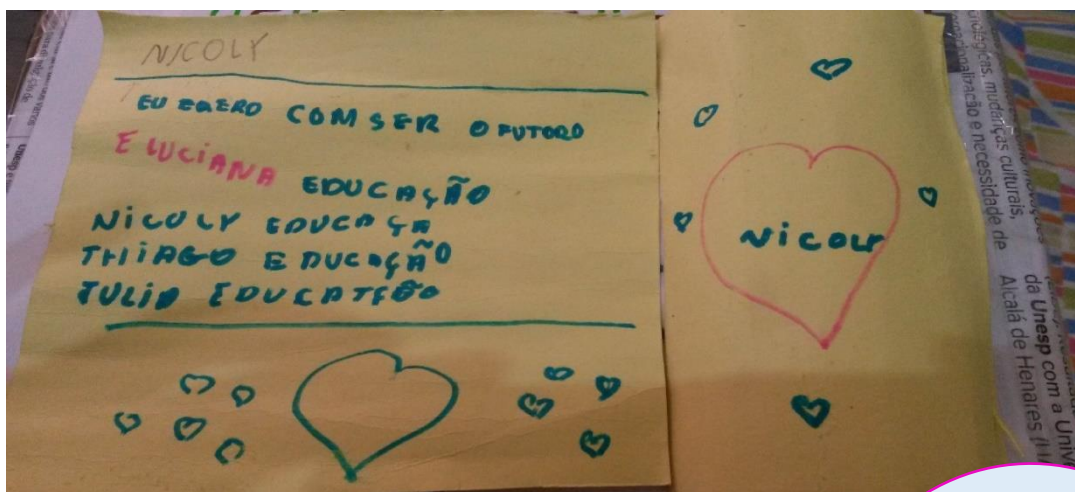 NICOLY
EU EQERO COM SER O FUTORO
E LUCIANA EDUCAÇÃO
NICOLY EDUCAÇA
THIAGO EDUCAÇÃO
JULIA
Nicoly
mudanças culturais,
necessidade de
da Unesp com a
Alcalá de Henares